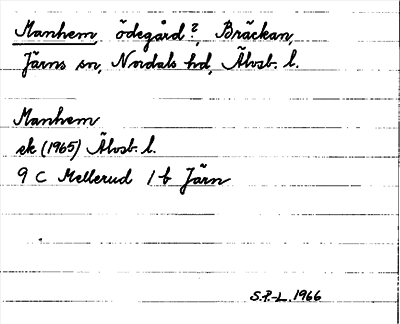 Manhem, ödegård?, Bräckan,
Järns sn, Nordals hd, Älvsb. l.
Manhem
ek (1965) Älvsb. l.
9 C Mellerud 1 b Järn
S.P.-L. 1966